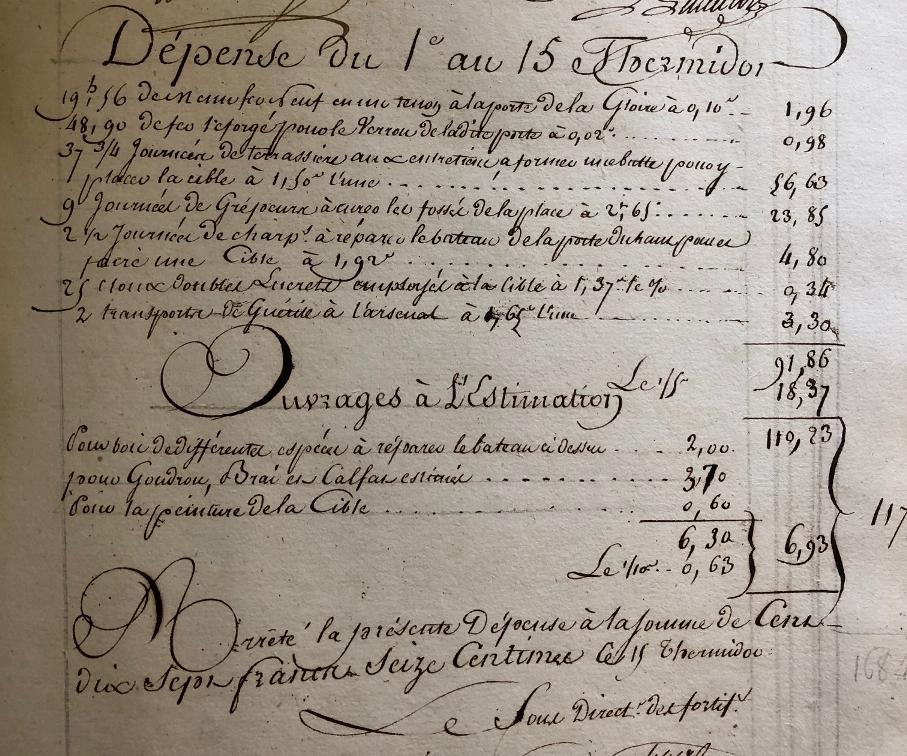 Dépense du 1er au 15 Thermidor
19 lb, 56 de menu fer neuf en un tenon à la porte de la Gloire à 0,10c .. 1,96
48, 90 de fer reforgé pour le Verrou de ladite porte à 0,02c ..... 0,98
37 3/4 Journées de terrassiers aux entretiens, a former une butte pour y
placer la cible à 1,50c l'une ..... 56,63
9 Journées de Gréjeurs à curer les fossés de la place à 2f,65c ..... 23,85
2 1/2 Journées de charp.t à réparer le bateau de la porte du haut pour et
faire une Cible à 1,92c ..... 4,80
25 cloux doubles Lucrets employés à la Cible à 1,37c le % ..... 0,34
2 transports de Guérite à l'arsenal à 1,65c l'une ..... 3,30
91,86
Le 1/5e 18,37
110,23
Ouvrages à L'Estimation
Pour bois de différentes espèces à réparer le bateau ci dessus .... 2,00
pour Goudron, Brai et Calfat estimés ..... 3,70
Pour la peinture de la Cible ..... 0,60
6,30
Le 1/10e .. 0,63
6,93
117
Arrêté la présente Dépense à la somme de Cent
dix Sept francs Seize Centimes ce 15 Thermidor
168
Le Sous Direct.r des fortif.s